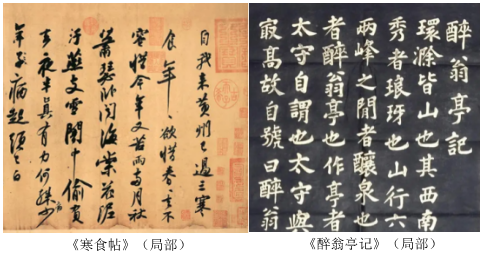 自我来黄州已過三寒
食年、欲惜春、去不
容惜今年又苦雨兩月秋
蕭瑟卧聞海棠花泥
汙燕支雪闇中偷負
去夜半真有力何殊少
年子病起頭已白
《寒食帖》（局部）
醉翁亭記
環滁皆山也其西南
秀者琅玡也山行六
兩峰之間者釀泉也
者醉翁亭也作亭者
太守自謂也太守與
冣高故自號曰醉翁
《醉翁亭记》（局部）